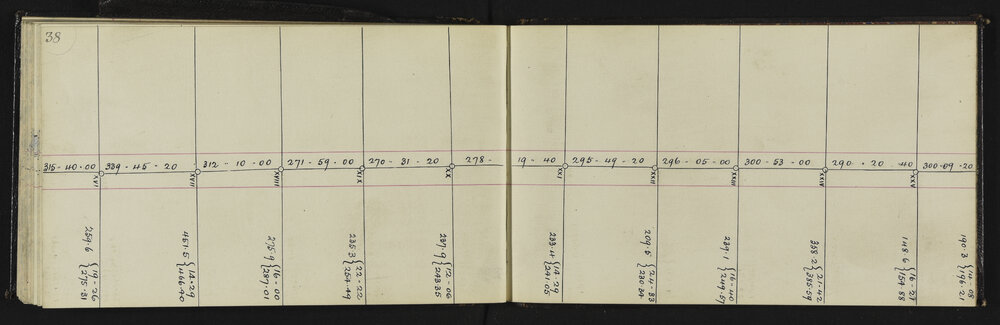 38
315-40-00 339-45-20 312-10-00 271-59-00 270-31-20 278-19-40 295-49-20 296-05-00 300-53-00 290-20-40 300-09-20
XVI XVII XVIII XIX XX XXI XXII XXIII XXIV XXV
259.6 { 19-26
275.31
451.5 { 14-29
466.40
275.9 { 16-00
287.01
235.3 { 22-22
254.49
237.9 { 12-06
243.35
233.4 { 14-29
241.05
209.5 { 24-33
230.34
239.1 { 16-40
249.57
338.2 { 21-42
355.59
148.6 { 16-27
154.88
190.3 { 14-08
196.21